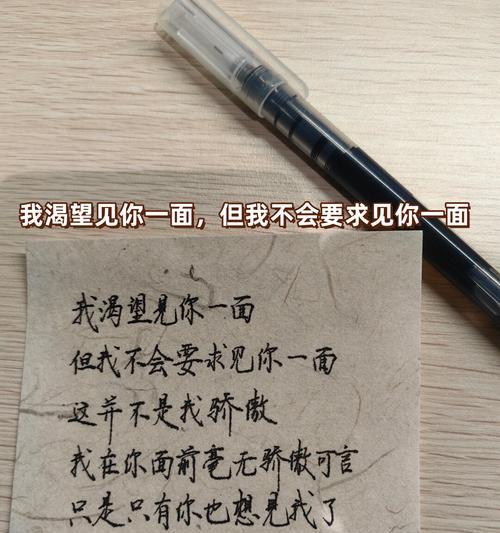 我渴望见你一面，但我不会要求见你一面
我渴望见你一面
但我不会要求见你一面
这并不是我骄傲
我在你面前毫无骄傲可言
只是只有你也想见我了